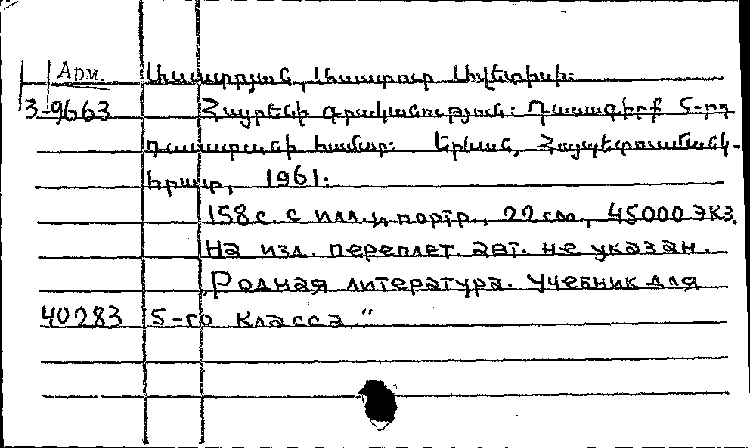 Арм.
3-9663 Հայրենի գրականություն: Դասագիրք 5-րդ
դասարանի համար: Երևան, Հայպետուսմանկ-
հրատ, 1961:
158 с. с илл. и портр., 22 см., 45000 экз.
На изд. переплет. авт. не указан.
„Родная литература. Учебник для
40283 5-го класса“